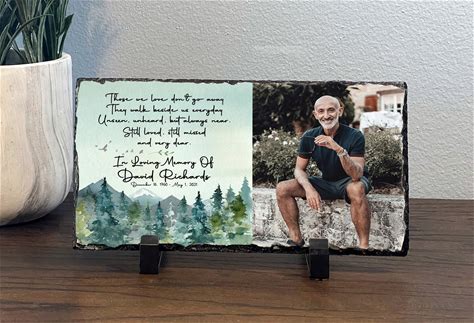 Those we love don't go away
They walk beside us everyday
Unseen, unheard, but always near,
Still loved, still missed
and very dear.
In Loving Memory Of
David Richards
December 18, 1960 - May 1, 2021